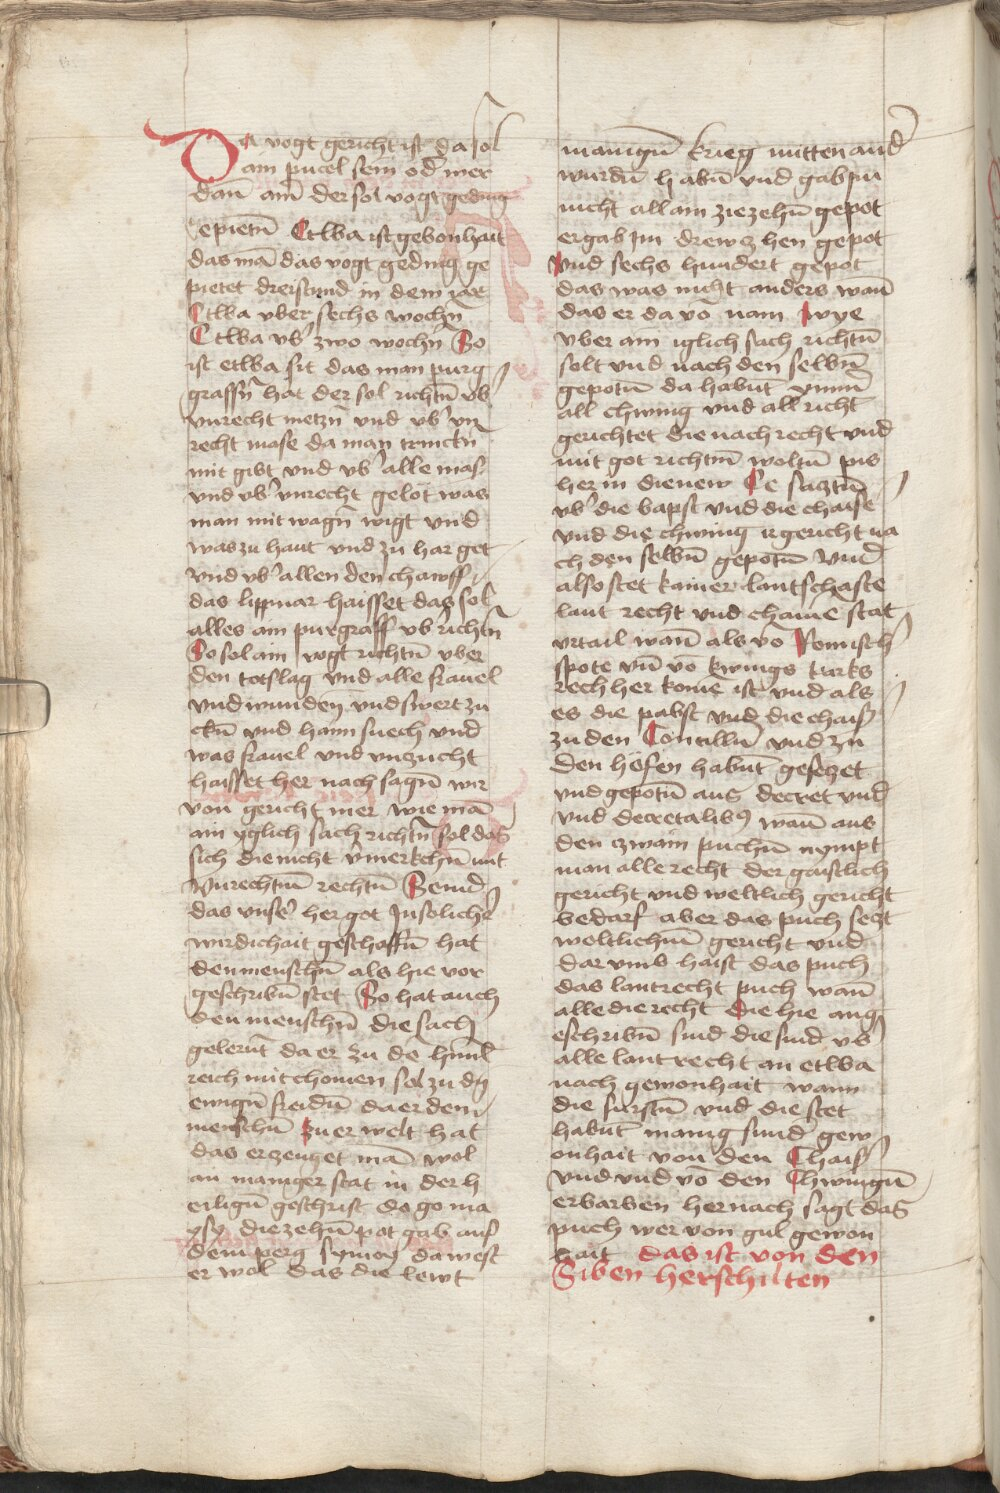 Da vogt gericht ist da sol
ain pucel sein od mer
dañ ain der sol vogt geding
epietñ Etlba ist gebonhait
das mā das vogt geding ge
pietet dreistund in dem jar
Etlba vber sechs wochñ
Etlba vb̾ zwo wochñ So
ist etlba sit das man purg
graffñ hat der sol richtñ vb̾
vnrecht metzñ vnd vb̾ vn
recht mase da man trinckñ
mit gibt vnd vb̾ alle mas
vnd vb̾ vnrecht gelöt was
man mit wagñ wigt vnd
was zu haut vnd zu har get
vnd vb̾ allen den chawff
das lippnar haisset das sol
alles ain purgraff vb̾ richtñ
So sol ain vogt richtñ vber
den totslag vnd alle fräuel
vnd wunden vnd swert zu
ckñ vnd haim suech vnd
was frauel vnd vnzucht
haisset her nach sagñ wir
von gericht mer wie mā
ain yglich sach richtñ sol das
sich die nicht v̾merkchñ mit
Vnrechtm̄ rechtñ Seind
das vnse̾ her got In soliche̾
wirdichait geschaffñ hat
den menschñ als hie vor
geschribñ stet So hat auch
den menschñ die sach
gelernt da er zu de himel
reich mit chomen sol zu dn̄
ewigñ freidñ da er dem
menschñ zu er welt hat
das erzeuget mā wol
an maniger stat in der h
eiligñ geschrift do go ma
ysy die zehñ pot gab auf
dem perg synoy da west
er wol das die lewt
manigñ krieg mitten and̾
wurdñ habñ vnd gab im
nicht allain zie zehñ gepot
er gab im drewzehen gepot
vnd sechs hundert gepot
das was nicht anders wañ
das er da vō nam wye
vber ain iglich sach richtñ
solt vnd nach den selbñ
gepotñ da habnt ymm̄
all chwing vnd all richt
gerichtet die nach recht vnd
mit got richtñ woltñ pis
her in die new Ee saztñ
vb̾ die bapst vnd die chaise̾
vnd die chwing ir gericht na
ch den selbñ gepotñ vnd
also stet kainer lantschafte
lant recht vnd chaine stat
vrtail wañ als vō Romisch̾
spote vñ vō kwings karks
rech her komē ist vnd als
es die pabst vnd die chais̾
zu den Concilliñ vnd zu
den höfen habnt gesetzet
vnd gepotñ aus decret vnd
vnd decretalibꝰ wañ aus
den zwain puchñ nympt
man alle recht der gaistlich
gericht vnd weltlich gericht
bedarf aber das puch sezt
weltlichñ gericht vnd
dar vmb haist das puch
das lantrecht puch wañ
alle die recht die hie ang
eschribñ sind die sind vb̾
alle lant recht an etlba
nach gewonhait wann
die furstñ vnd die stet
habnt manig sund gew
onhait von den Chais̾
vnd vnd vō den Chwingñ
erbarben her nach sagt das
puch wer von gut gewon
hait das ist von den
Siben herschilten